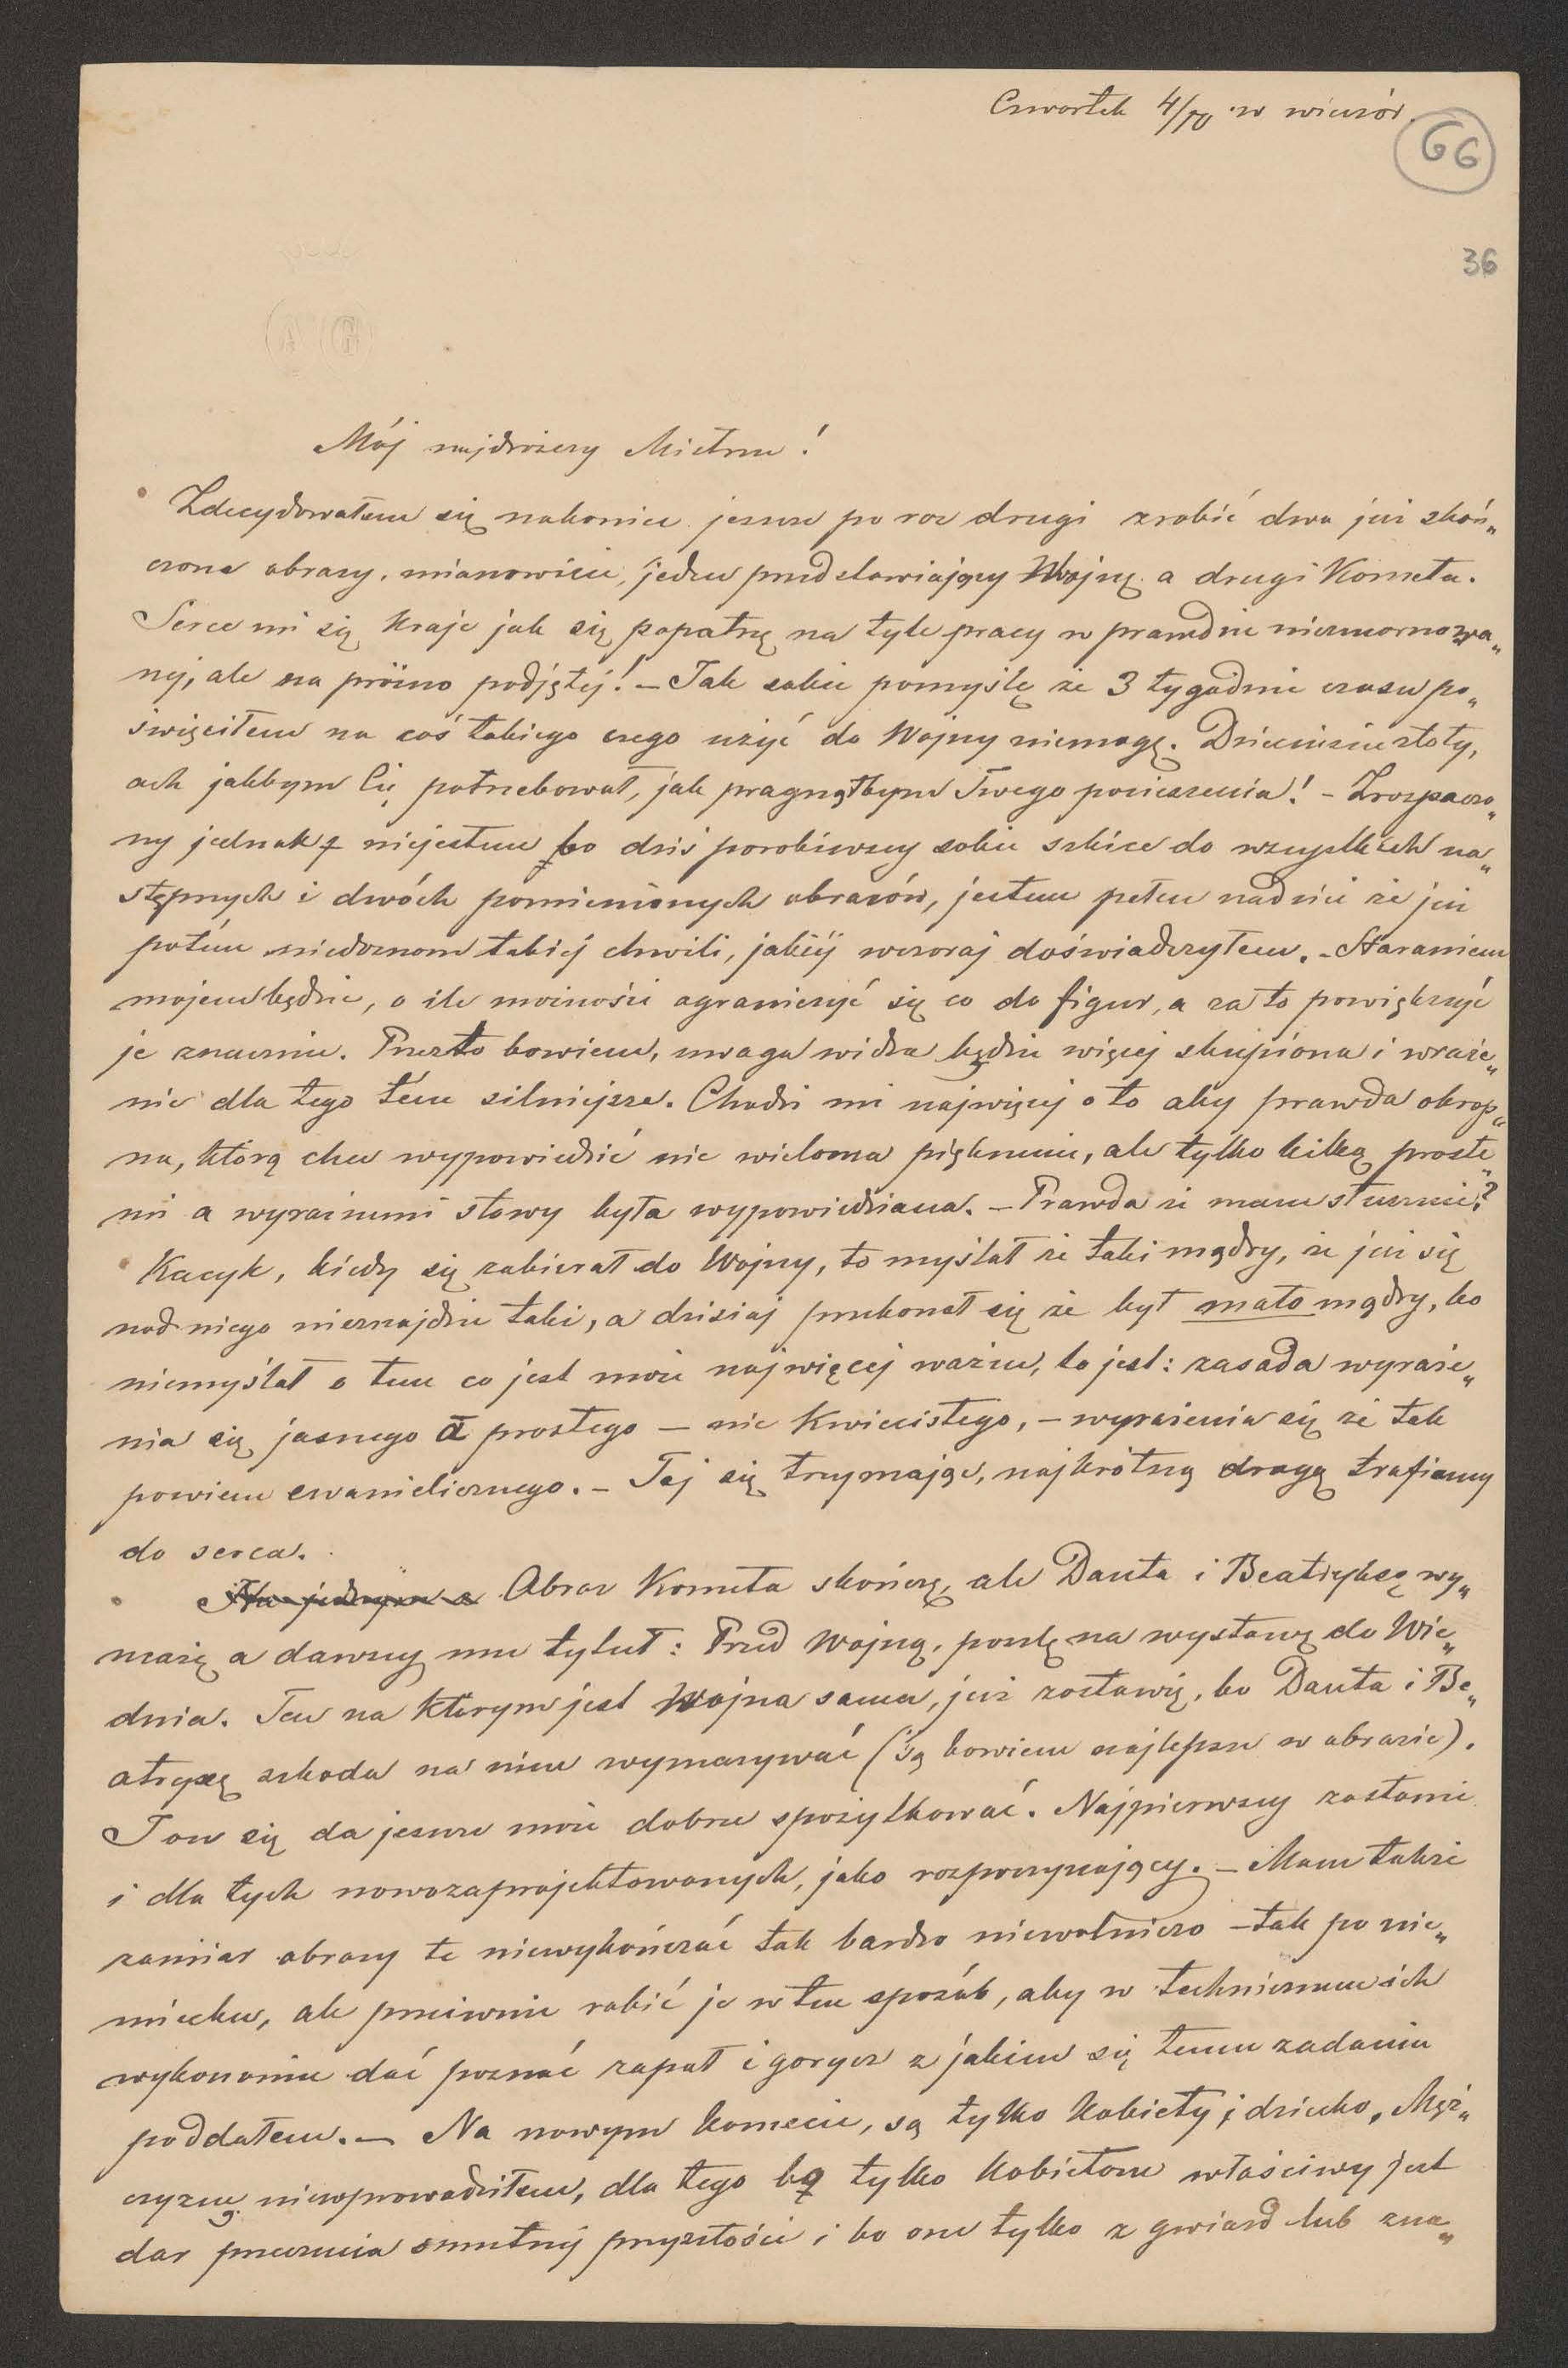 Czwartek 4/IV w wieczór.
66
36
AG
Mój najdroższy Mietzu!
Zdecydowałem się nakoniec jeszcze po raz drugi zrobić dwa już skoń„
czone obrazy, mianowicie, jeden przedstawiający Wojnę a drugi Kometa.
Serce mi się kraje jak się popatrzę na tyle pracy w prawdzie niezmarnowa„
nej, ale na próżno podjętej! – Jak sobie pomyślę że 3 tygodnie czasu po„
święciłem na coś takiego czego użyć do Wojny niemogę. Dziecinsiu złoty,
ach jakbym Cię potrzebował, jak pragnąłbym Twego pocieszenia! – Zrozpaczo„
ny jednak niejestem bo dziś porobiwszy sobie szkice do wszystkich na„
stępnych i dwóch pomienionych obrazów, jestem pełen nadziei że już
potém niedoznam takiéj chwili, jakiéj wczoraj doświadczyłem. – Staraniem
mojem będzie, o ile możności ograniczyć się co do figur, a za to powiększyć
je znacznie. Przez to bowiem, uwaga widza będzie więcej skupiona i wraże„
nie dla tego tém silniejsze. Chodzi mi najwięcej o to aby prawda okrop„
na, którą chcę wypowiedzić nie wieloma pięknemi, ale tylko kilką proste„
mi a wyraźnemi słowy była wypowiedziana. – Prawda że mam słuszność?
Kacyk, kiedy się zabierał do Wojny, to myślał że taki mądry, że już się
nad niego nieznajdzie taki, a dzisiaj przekonał się że był mało mądry, bo
niemyślał o tem co jest może najwięcej ważne, to jest: zasada wyraże„
nia się jasnego a prostego – nie kwiecistego, – wyrażenia się że tak
powiem ewanielicznego. – Tej się trzymając, najkrótszą drogą trafiamy
do serca.
Na jednym z Obraz Kometa skończę, ale Danta i Beatryksę wy„
mażę a dawszy mu tytuł: Przed Wojną, poszlę na wystawę do Wie„
dnia. Ten na którym jest Wojna sama, już zostawię, bo Danta i Be„
atryxę szkoda na nim wymazywać (są bowiem najlepsze w obrazie).
I on się da jeszcze może dobrze spożytkować. Najpierwszy zostanie
i dla tych nowozaprojektowanych, jako rozpoczynający. – Mam także
zamiar obrazy te niewykończać tak bardzo niewolniczo – tak po nie„
miecku, ale przeciwnie robić je w ten sposób, aby w technicznem ich
wykonaniu dać poznać zapał i gorycz z jakiem się temu zadaniu
poddałem. – Na nowym komecie, są tylko kobiety i dziecko. Męż„
czyzn niewprowadziłem, dla tego bo tylko kobietom właściwy jest
dar przeczucia smutnéj przyszłości i bo one tylko z gwiazd lub zna„